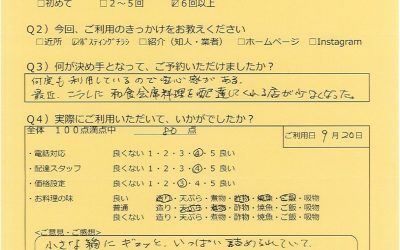 □初めて □2～5回 ☑6回以上
Q2）今回、ご利用のきっかけをお教えください
□近所 ☑ポスティングチラシ □紹介（知人・業者） □ホームページ □Instagram
Q3）何が決め手となって、ご予約いただけましたか？
何度も利用しているので安心感がある。
最近、こうした和食会席料理を配達してくれる店が少なくなった。
Q4）実際にご利用いただいて、いかがでしたか？
全体 100点満点中 80 点
ご利用日 9月20日
・電話対応 良くない 1・2・3・4・5 良い
・配達スタッフ 良くない 1・2・3・4・5 良い
・価格設定 良くない 1・2・3・4・5 良い
・お料理の味 良い 造り・天ぷら・煮物・酢物・焼魚・ご飯・吸物
普通 造り・天ぷら・煮物・酢物・焼魚・ご飯・吸物
良くない 造り・天ぷら・煮物・酢物・焼魚・ご飯・吸物
＜ご意見・ご感想＞
小さな箱にギュッと、いっぱい詰められていて、